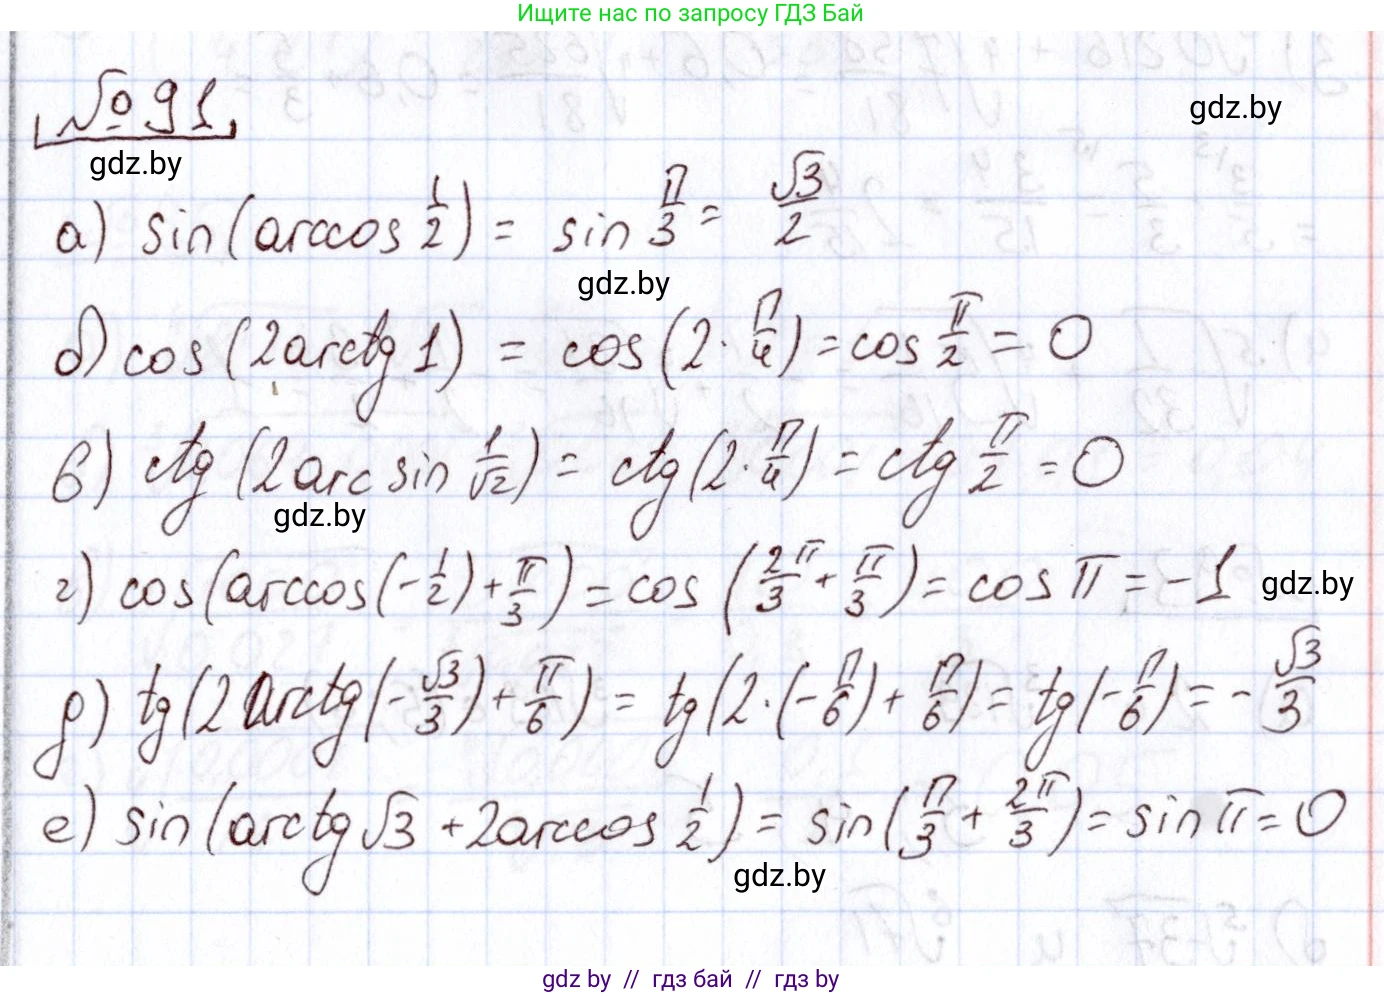 Ищите нас по запросу ГДЗ Бай
№91
gdz.by
gdz.by
а) sin(arccos 1/2) = sin π/3 = √3/2
gdz.by
б) cos(2arctg 1) = cos(2·π/4) = cos π/2 = 0
в) ctg(2arcsin 1/√2) = ctg(2·π/4) = ctg π/2 = 0
gdz.by
г) cos(arccos(-1/2) + π/3) = cos(2π/3 + π/3) = cos π = -1
gdz.by
д) tg(2arctg(-√3/3) + π/6) = tg(2·(-π/6) + π/6) = tg(-π/6) = -√3/3
е) sin(arctg √3 + 2arccos 1/2) = sin(π/3 + 2π/3) = sin π = 0
gdz.by
gdz by // гдз бай // гдз by